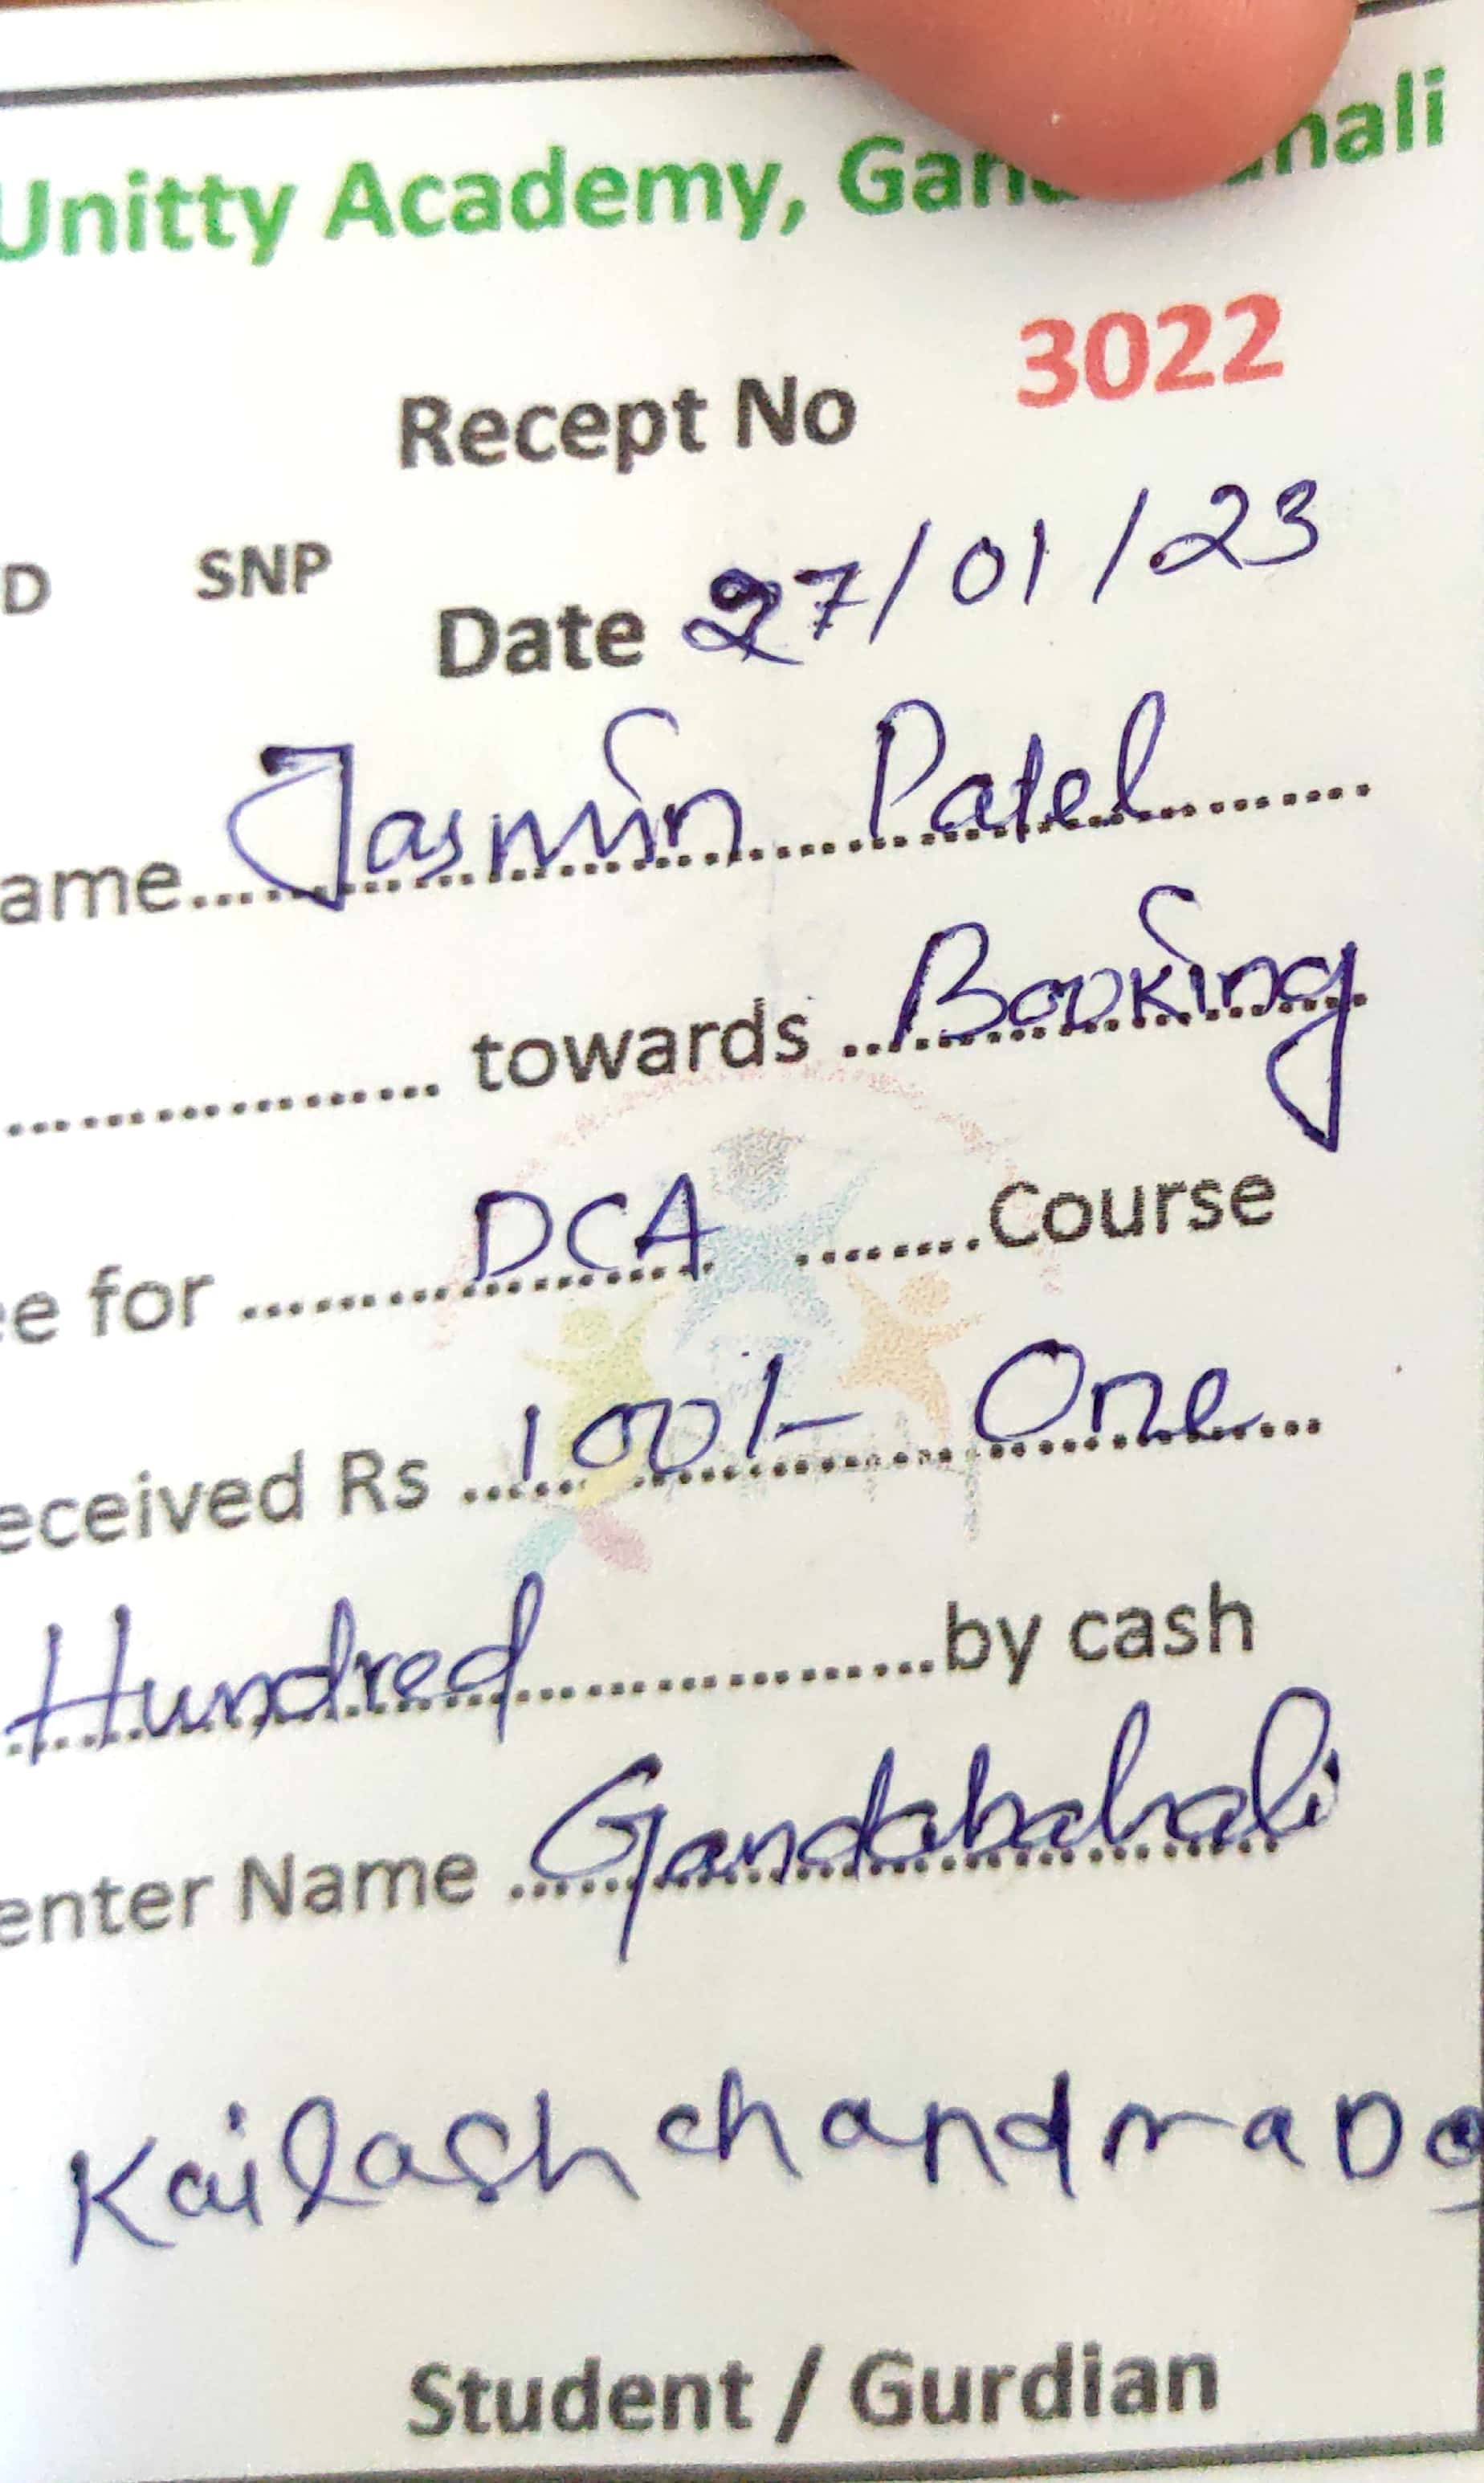 Unitty Academy,
Recept No 3022
D SNP
Date 27/01/23
ame.... Jasmin Patel ........
.................. towards ... Booking
e for ........ DCA ........Course
eceived Rs ..... 100/- One ...
Hundred ..................by cash
enter Name ... Gandabahali
Kailash chandra
Student / Gurdian